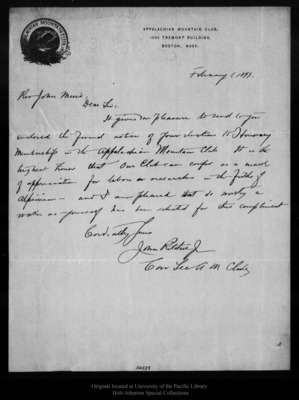 APPALACHIAN MOUNTAIN CLUB,
1050 TREMONT BUILDING,
BOSTON, MASS.
February 1, 1898.
Rev John Muir,
Dear Sir:
It gives me pleasure to send to you
enclosed the formal notice of your election to Honorary
Membership in the Appalachian Mountain Club. It is the
highest honor that Our Club can confer as a mark
of appreciation for labors or researches in the fields of
Alpinism – and I am pleased that so worthy a
worker as yourself has been selected for this compliment
Cordially Yours
John Ritchie Jr
Cor Sec A M Club
Original located at University of the Pacific Library
Holt-Atherton Special Collections